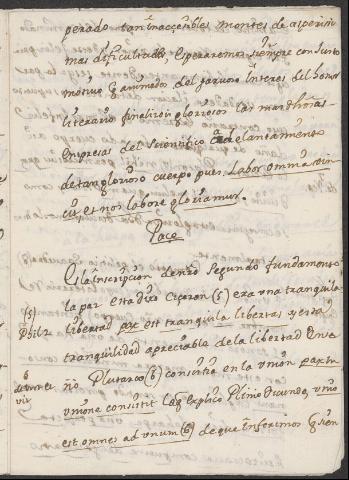 perado tan inaccesibles montes de asperisi
mas dificultades, esperaremos siempre con justo
motivo q animados del garvoso interes del honor
literario finalicen gloriosos las
empresas del scientifico adelantamiento
de tan glorioso cuerpo pues Labor omnia vin
cit, et nos labore gloriamur.
Pace
Es la inscripcion tercio segundo fundamento
la paz esta dixo Ciceron (5) era una tranquila
(5)
Phil 2
libertad pax est tranquila libertas y esta
tranquilidad apreciable de la libertad
ño Plutarco (6) consistia en la union pax in
6
unione consistit la q explico Plinio diciendo, unio
est omnes ad unum (6) de que inferimos q sien